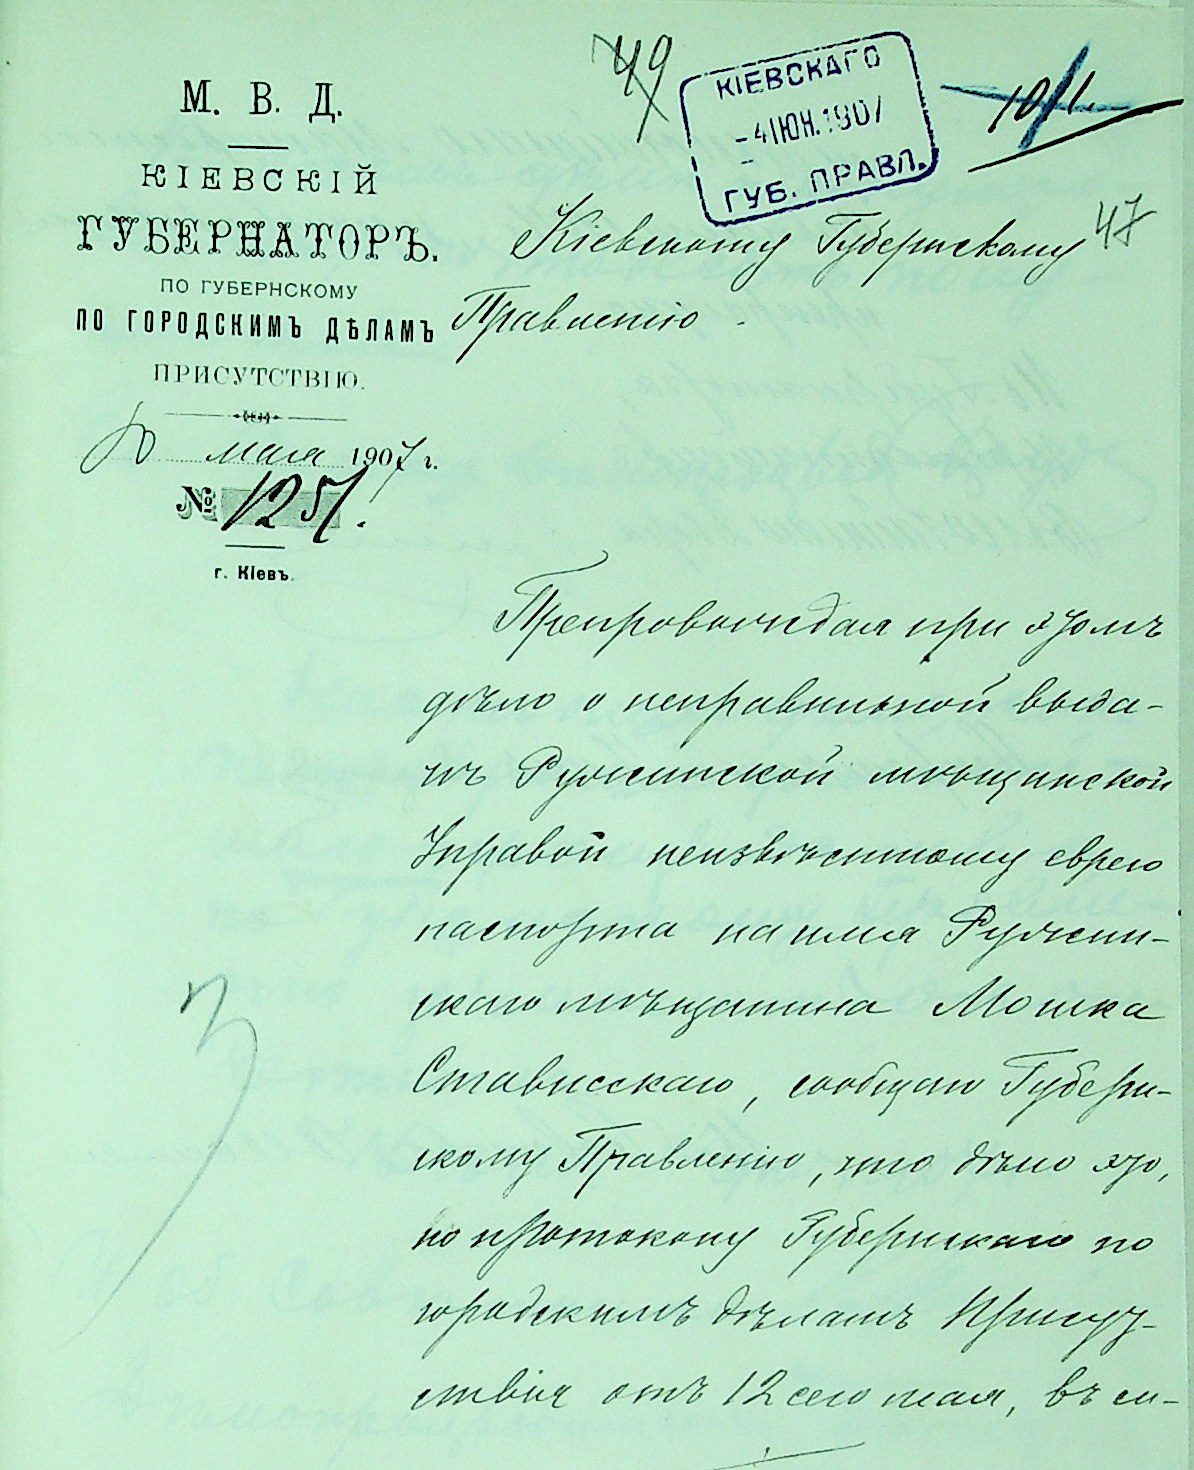 49
КІЕВСКАГО
-4 ІЮН. 1907
ГУБ. ПРАВЛ.
10/I
М. В. Д.
КІЕВСКІЙ
ГУБЕРНАТОРЪ.
ПО ГУБЕРНСКОМУ
ПО ГОРОДСКИМЪ ДѢЛАМЪ
ПРИСУТСТВІЮ.
мая 1907 г.
№ 1251.
г. Кіевъ.
47
Кіевскому Губернскому
Правленію.
Препровождая при этомъ
дѣло о неправильной выда-
чѣ Ружинской мѣщанской
Управой неизвѣстному еврею
паспорта на имя Ружин-
скаго мѣщанина Мошка
Стависскаго, сообщаю Губерн-
скому Правленію, что дѣло это,
по протоколу Губернскаго по
городскимъ дѣламъ Присут-
ствія отъ 12 сего мая, въ си-